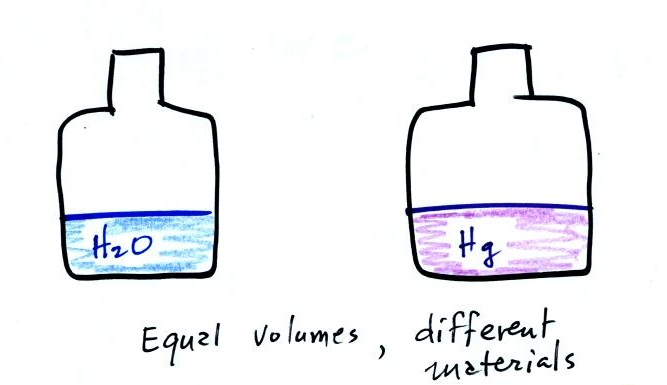 H₂O
Hg
Equal volumes, different
materials